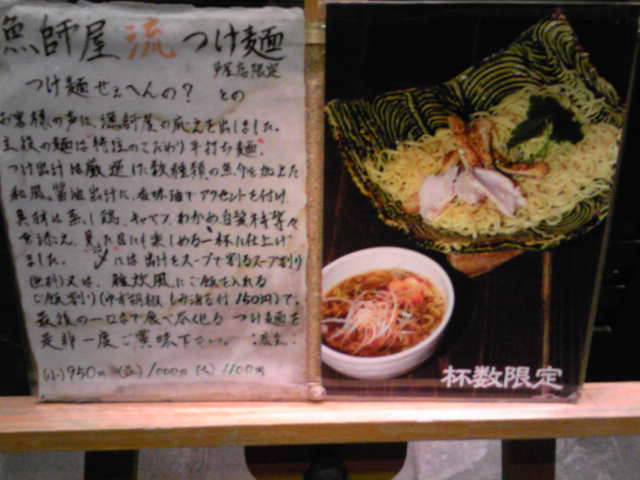 漁師屋 流 つけ麺
芦屋店限定
つけ麺せぇへんの？ との
お客様の声に、漁師屋の底力を出しました。
主役の麺は特注のこだわり手打ち麺。
つけ出汁は厳選した数種類の魚介を加えた
和風醤油出汁に、香味油でアクセントを付け
具材は蒸し鶏、キャベツ、わかめ、自製
を添え、見た目にも楽しめる一杯に仕上げ
ました。〆には出汁をスープで割るスープ割り
(無料)又は、雑炊風にご飯を入れる
ご飯割り(150円)で、
最後の一口まで食べ尽くせる つけ麺を
是非一度ご賞味下さい。 店主
(小)950円 (並)1000円 (大)1100円
杯数限定